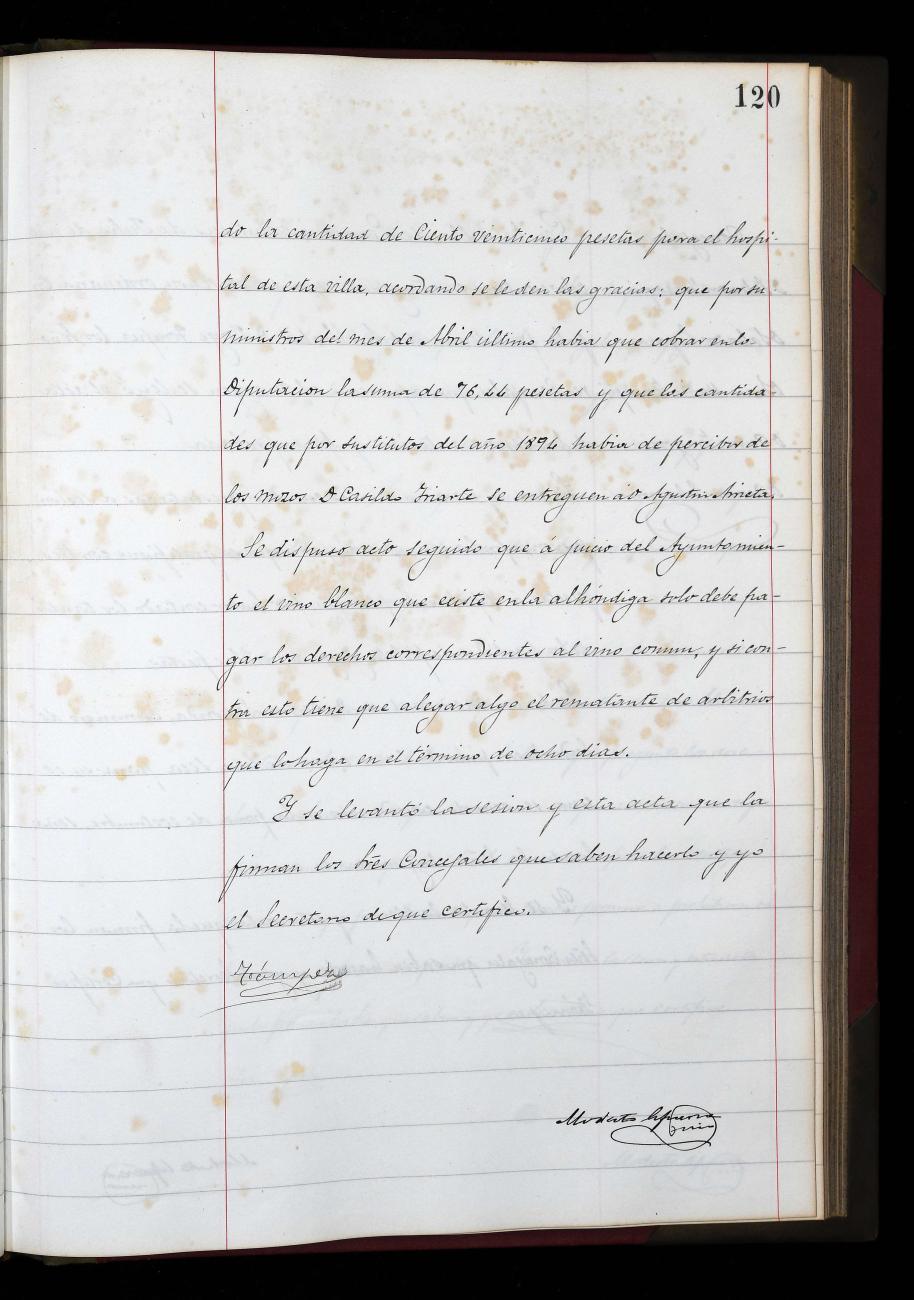 120
do la cantidad de Ciento veinticinco pesetas para el hospi-
tal de esta villa, acordando se le den las gracias; que por su-
ministros del mes de Abril último habia que cobrar en la
Diputacion la suma de 76,44 pesetas y que las cantida-
des que por sustitutos del año 1894 habia de percibir de
los mozos D Casildo Iriarte se entreguen á D Agustin Arrieta.
Se dispuso acto seguido que á juicio del Ayuntamien-
to el vino blanco que existe en la alhóndiga solo debe pa-
gar los derechos correspondientes al vino comun, y si con-
tra esto tiene que alegar algo el rematante de arbitrios
que lo haga en el término de ocho dias.
Y se levantó la sesion y esta acta que la
firman los Sres Concejales que saben hacerlo y yo
el Secretario de que certifico.
Modesto